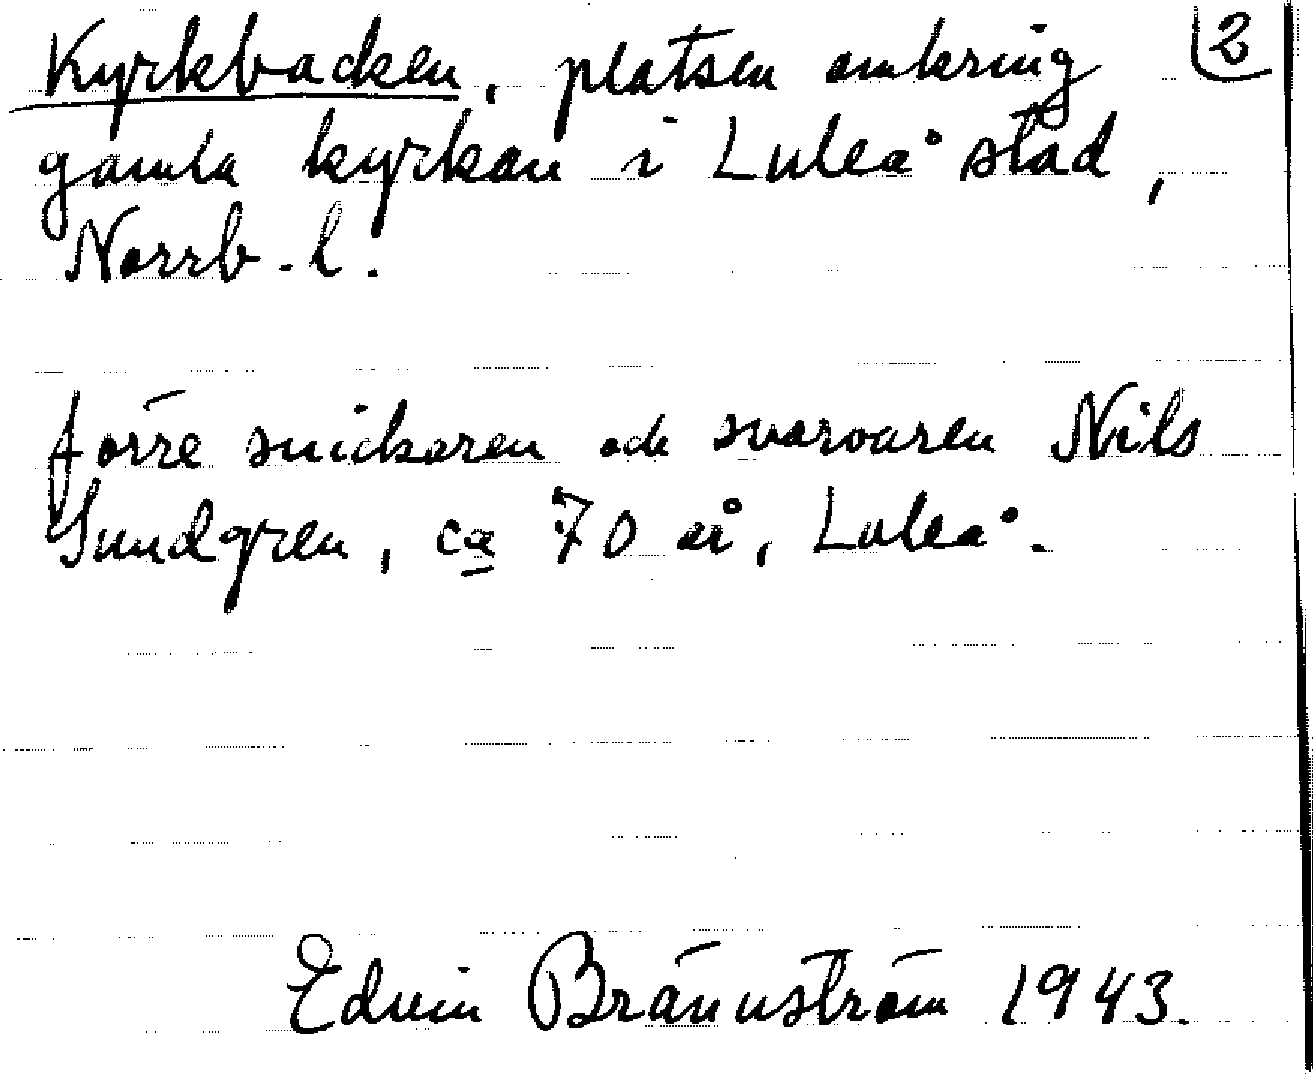 Kyrkbacken, platsen omkring 2
gamla kyrkan i Luleå stad,
Norrb. l.
förre snickaren och svarvaren Nils
Sundgren, ca 70 år, Luleå.
Edvin Brännström 1943.